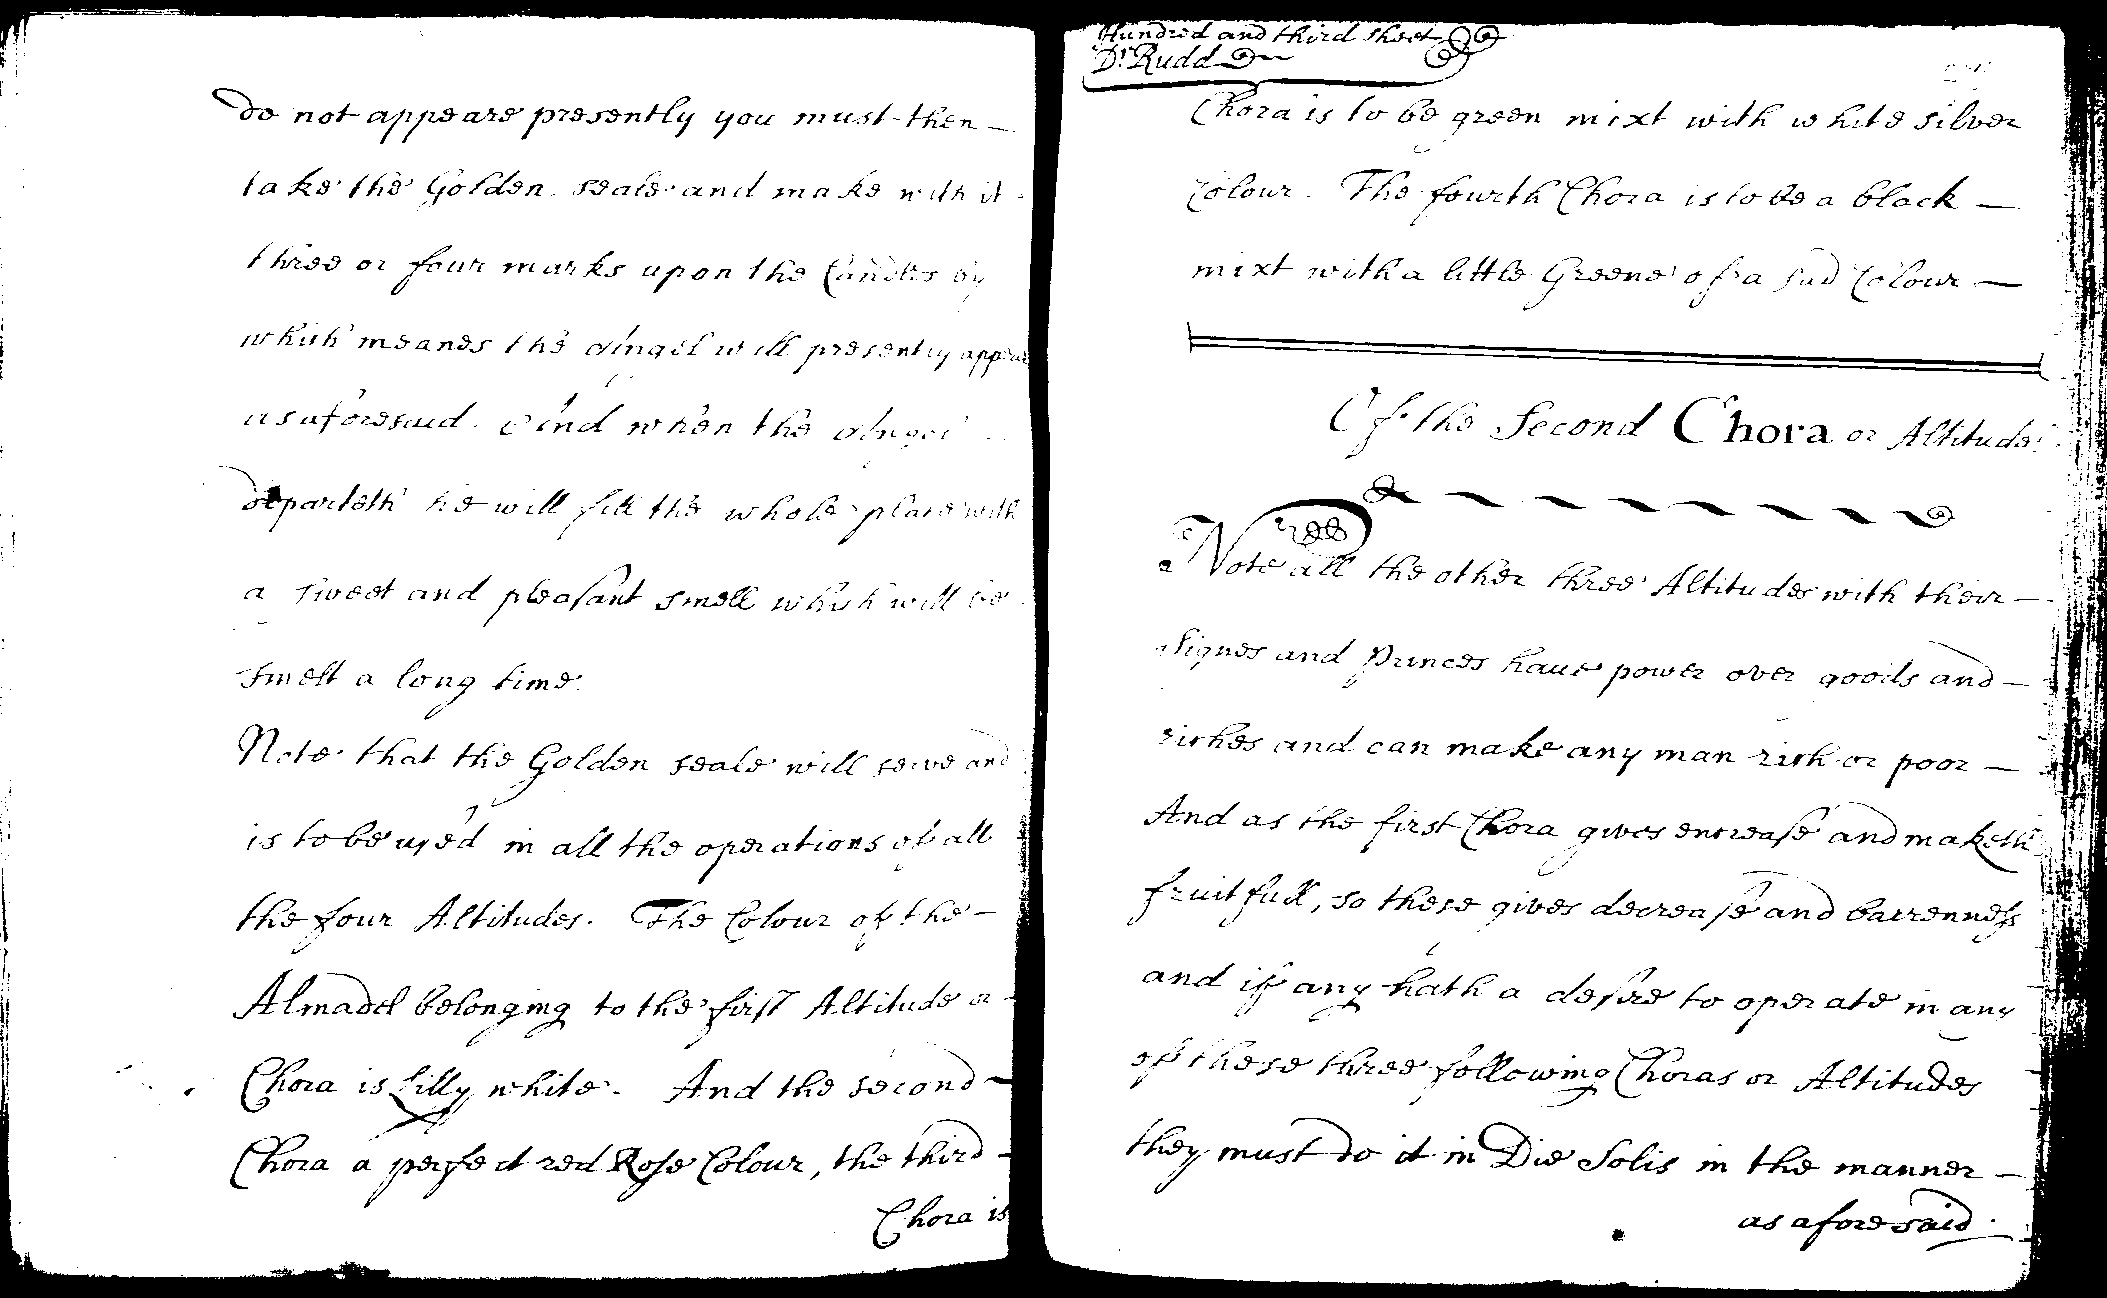 do not appeare presently you must then
take the Golden seale and make with it
three or four marks upon the Candles by
which meanes the Angel will presently appeare
as aforesaid. And when the Angel
departeth he will fill the whole place with
a sweet and pleasant smell which will be
smelt a long time.
Note that the Golden seale will serve and
is to be used in all the operations of all
the four Altitudes. The Colour of the
Almadel belonging to the first Altitude or
Chora is Lilly white. And the second
Chora a perfect red Rose Colour, the third
Chora is
Hundred and third sheet
Dr Rudd
Chora is to be green mixt with white silver
Colour. The fourth Chora is to be a black
mixt with a little Greene of a sad Colour
Of the Second Chora or Altitude
Note all the other three Altitudes with their
Signes and Princes have power over goods and
riches and can make any man rich or poor
And as the first Chora gives encrease and maketh
fruitfull, so these gives decrease and barrenness
and if any hath a desire to operate in any
of these three following Choras or Altitudes
they must do it in Die Solis in the manner
as aforesaid.